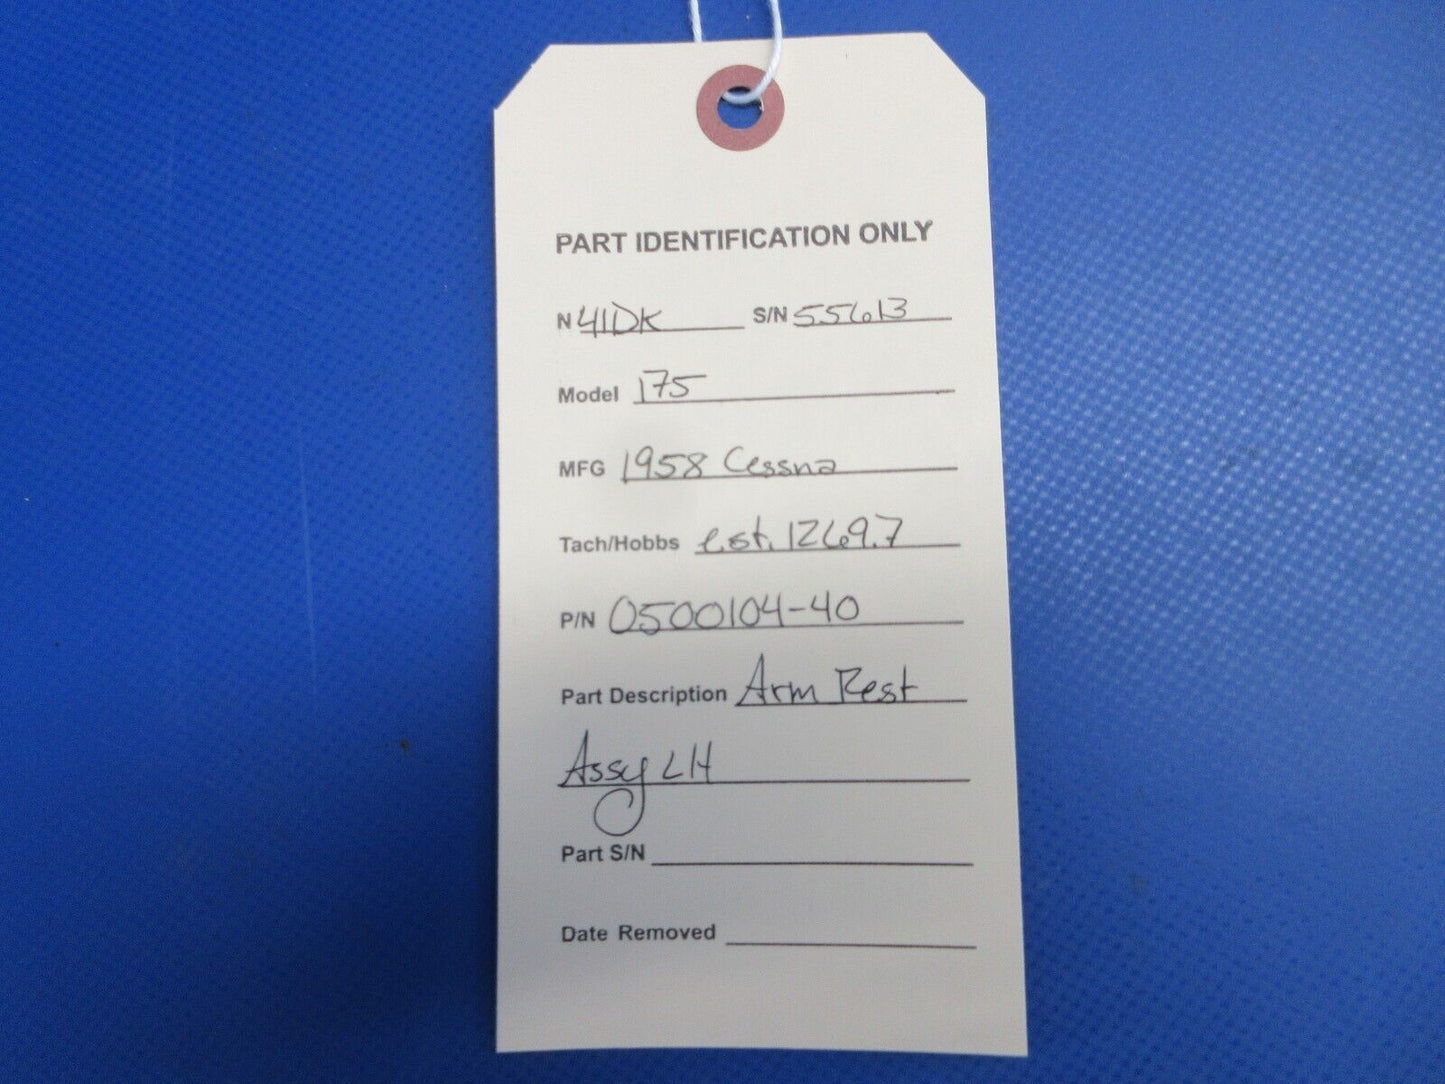 PART IDENTIFICATION ONLY
N 41DK S/N 55613
Model 175
MFG 1958 Cessna
Tach/Hobbs est. 1269.7
P/N 0500104-40
Part Description Arm Rest
Assy LH
Part S/N
Date Removed